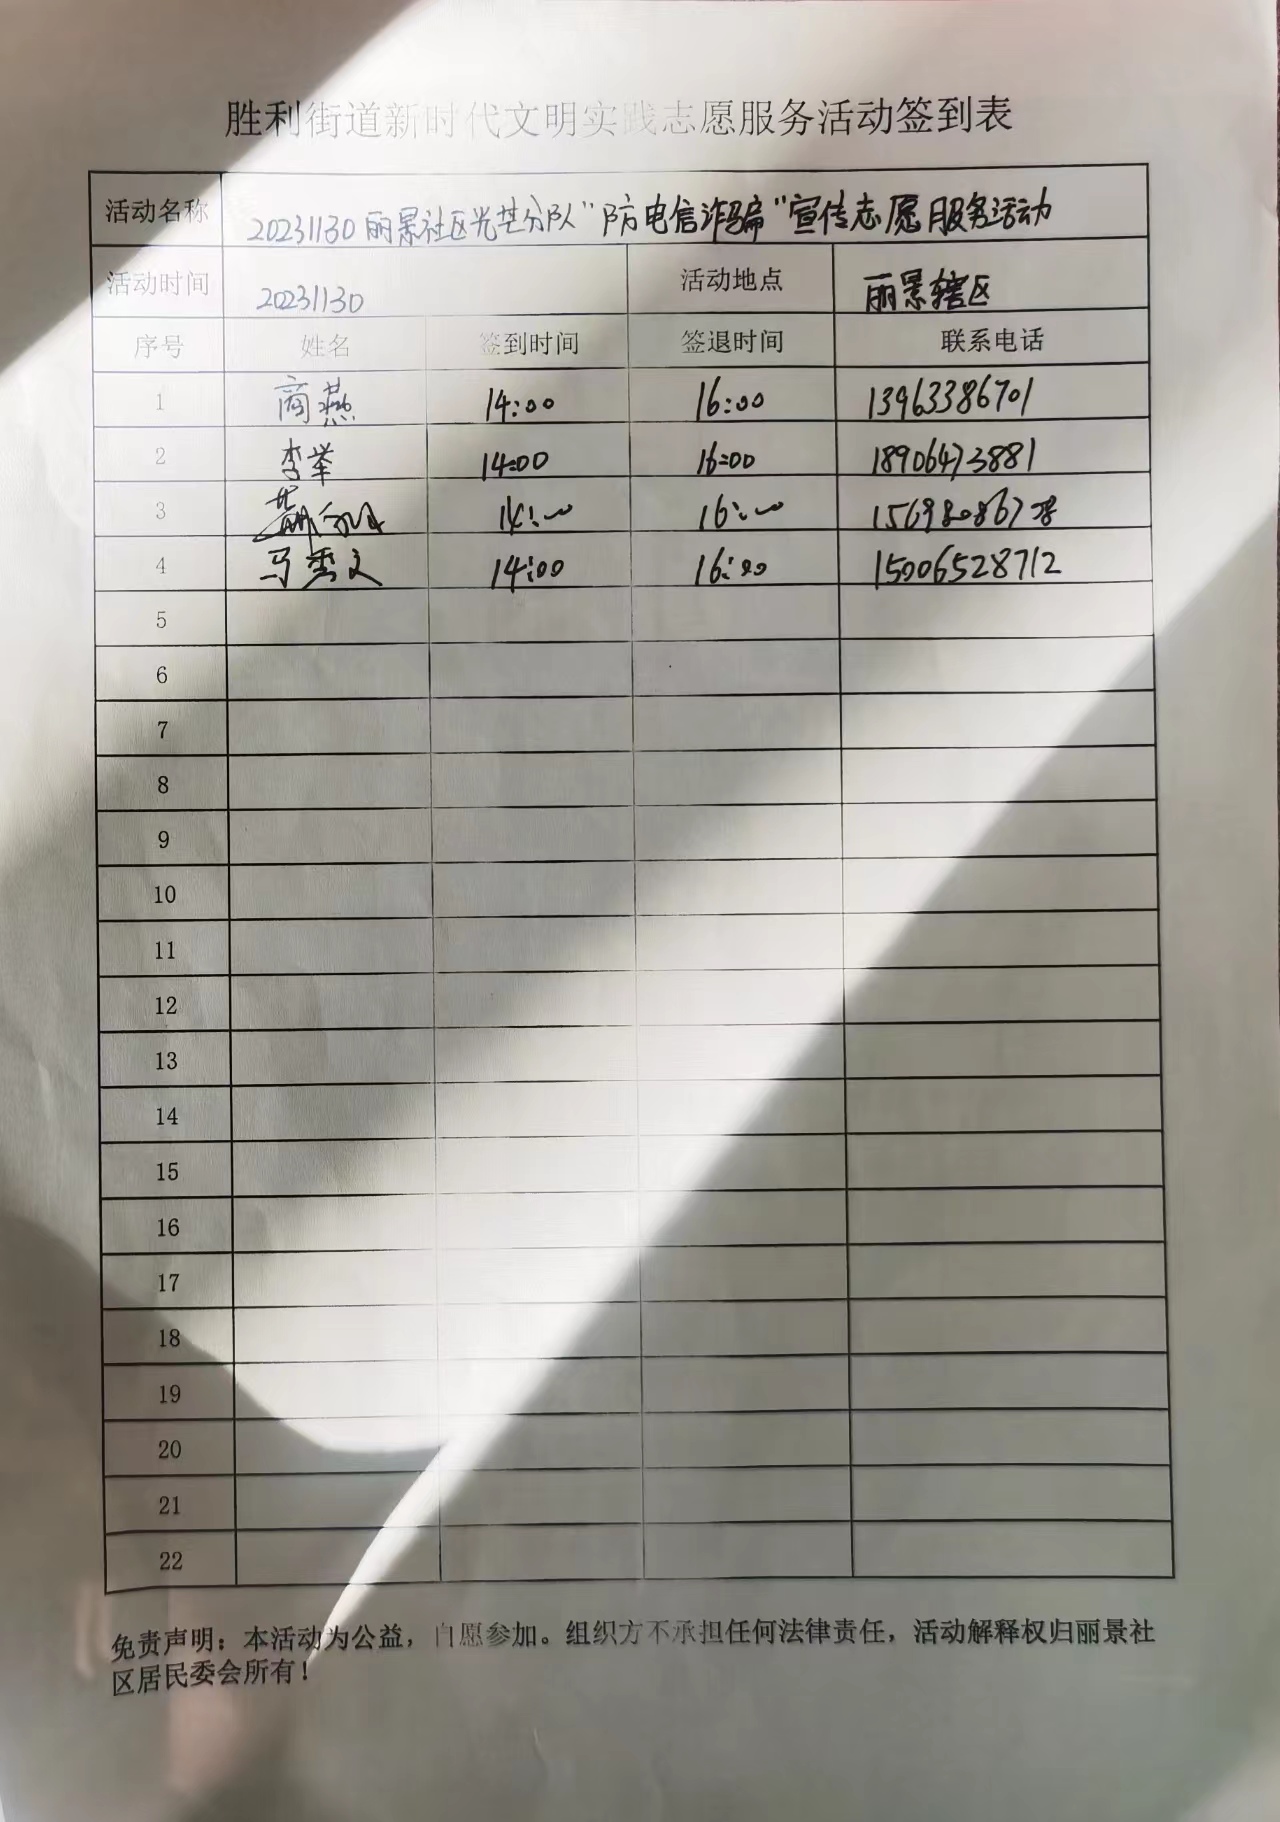 胜利街道新时代文明实践志愿服务活动签到表
活动名称 20231130丽景社区光芒分队“防电信诈骗”宣传志愿服务活动
活动时间 20231130 活动地点 丽景辖区
序号 姓名 签到时间 签退时间 联系电话
1 商燕 14:00 16:00 13963386701
2 李举 14:00 16:00 18906473881
3 14:00 16:00
4 马秀文 14:00 16:00 15006528712
5
6
7
8
9
10
11
12
13
14
15
16
17
18
19
20
21
22
免责声明：本活动为公益，自愿参加。组织方不承担任何法律责任，活动解释权归丽景社
区居民委会所有！